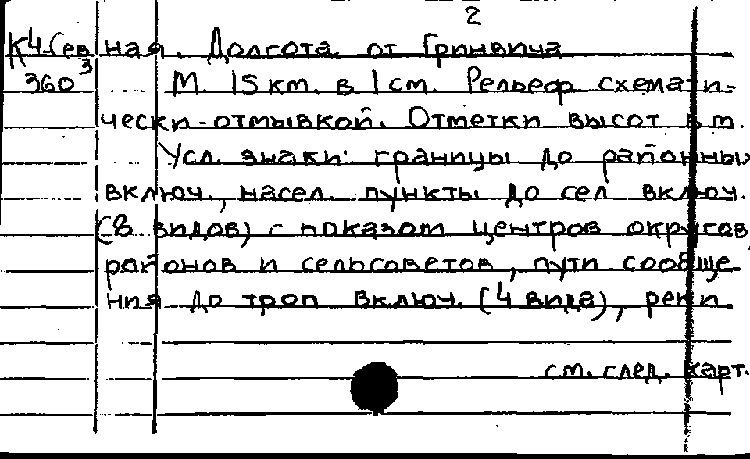 2
К4-Сев ная. Долгота от Гринвича
360³ М. 15 km. в 1 см. Рельеф схемати-
чески-отмывкой. Отметки высот в m.
Усл. знаки: границы до районных
включ., насел. пункты до сел включ.
(8 видов) с показом центров округов,
районов и сельсоветов, пути сообще
ния до троп включ. (4 вида), реки
см. след. карт.